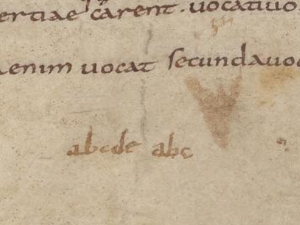 ertiae carent. vocativo
enim vocat secundavo
abcde abc